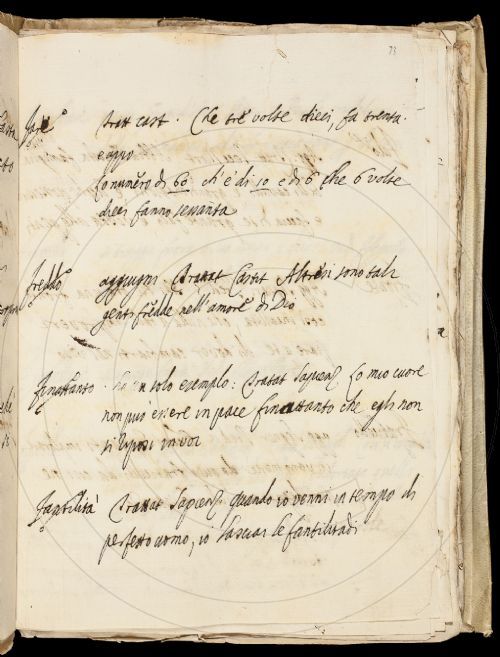 73
Fare Tratt cast. Che tre volte dieci, fa trenta.
e appo
Lo numero di 60. ch'è di 10 e di 6 che 6 volte
dieci fanno sessanta
Freddo aggiugni. Trattat Castit Altresi sono tali
genti fredde nell'amore di Dio
Finattanto. un solo esemplo: Trattat Sapienz. Lo mio cuore
non può essere in pace finattanto che egli non
si riposi in voi
Fantilità Trattat Sapienz. quando io venni in tempo di
perfetto uomo, io lasciai le fantilitadi